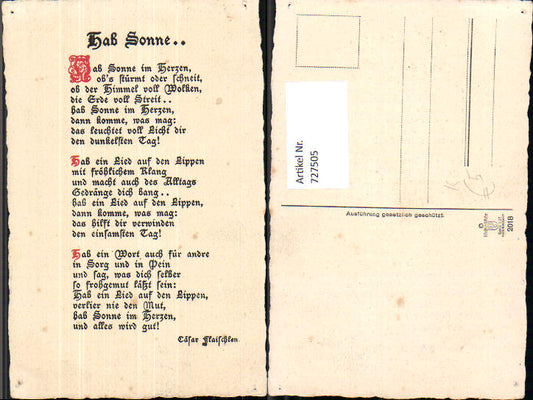 Hab Sonne..
Hab Sonne im Herzen,
ob's stürmt oder schneit,
ob der Himmel voll Wolken,
die Erde voll Streit..
hab Sonne im Herzen,
dann komme, was mag:
das leuchtet voll Licht dir
den dunkelsten Tag!
Hab ein Lied auf den Lippen
mit fröhlichem Klang
und macht auch des Alltags
Gedränge dich bang..
hab ein Lied auf den Lippen,
dann komme, was mag:
das hilft dir verwinden
den einsamsten Tag!
Hab ein Wort auch für andre
in Sorg und in Pein
und sag, was dich selber
so frohgemut läßt sein:
Hab ein Lied auf den Lippen,
verlier nie den Mut,
hab Sonne im Herzen,
und alles wird gut!
Cäsar Flaischlen
Artikel Nr.
727505
Ausführung gesetzlich geschützt.
©
2018